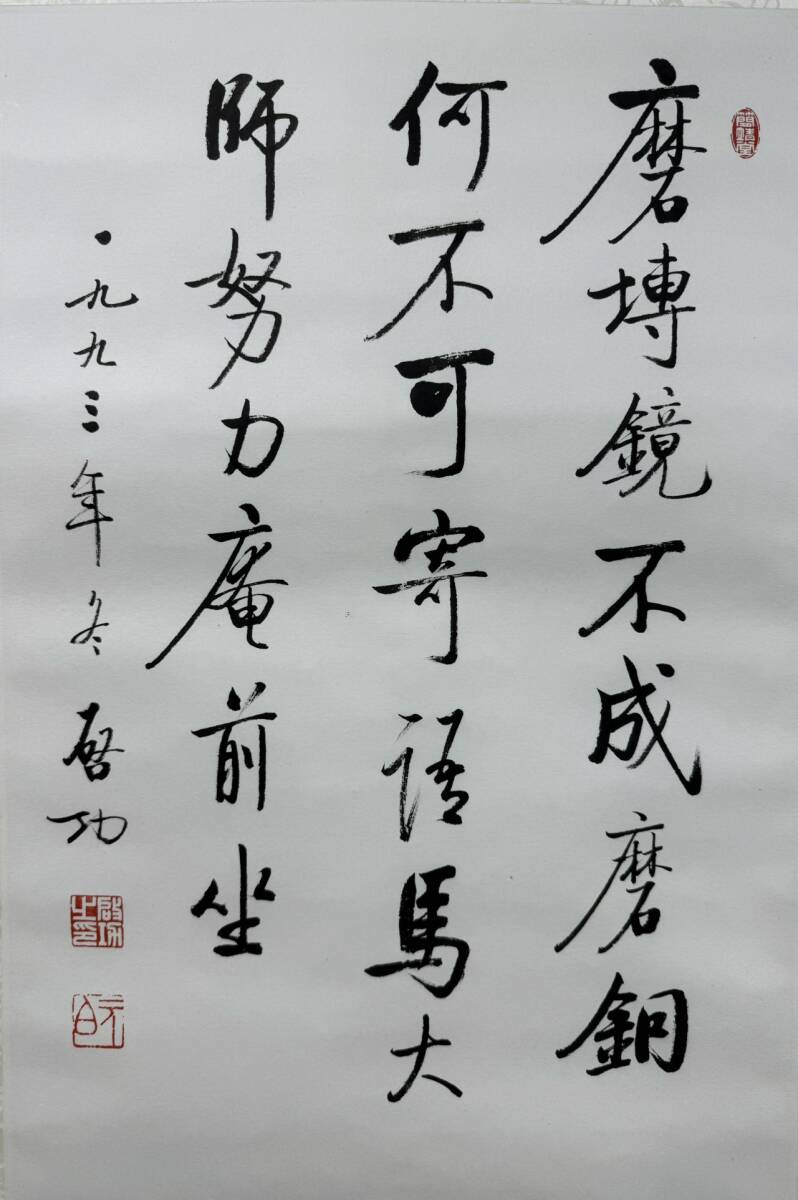 磨塼鏡不成磨銅
何不可寄語馬大
師努力庵前坐
一九九三年冬 啓功
啟功之印
元白